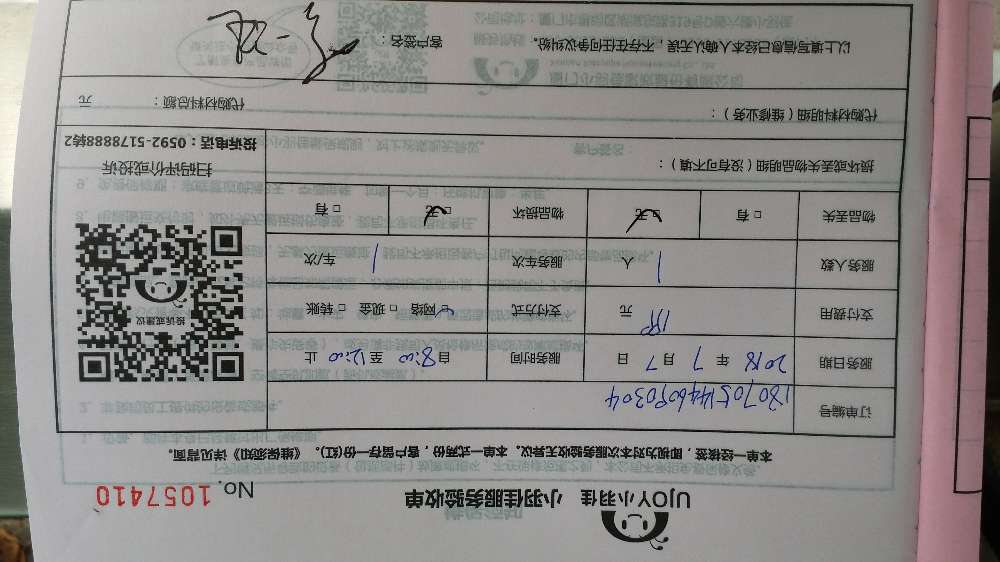 UJOY小羽佳 小羽佳服务验收单
No. 1057410
本单一经核签，即视为对本次服务验收无异议。本单一式两份，客户留存一份(红)。《维保须知》详见背面。
订单编号 1807051446090304
服务日期 2018 年 7 月 7 日 服务时间 自 8:00 至 12:00 止
支付费用 元 支付方式 □ 网络 □ 现金 □ 转账
服务人数 1 人 服务车次 1 车/次
物品丢失 □ 有 □ 无 物品损坏 □ 无 □ 有
投诉或建议
扫码评价或投诉
投诉电话：0592-5178888转2
损坏或丢失物品明细（没有可不填）：
代购材料明细（维修业务）： 代购材料总额： 元
以上填写信息已经本人确认无误，不存在任何争议纠纷。 客户签名：